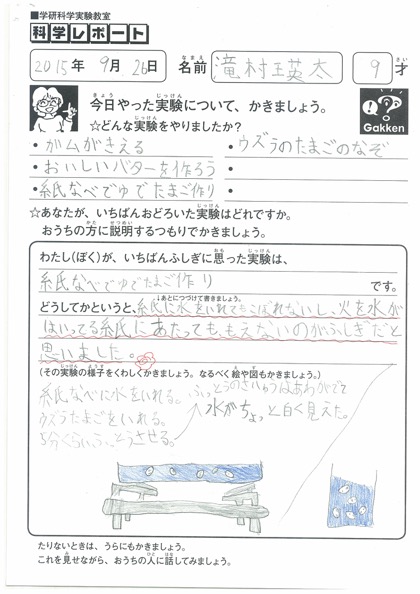 ■学研科学実験教室
科学レポート
2015年 9月 26日 名前 なまえ 滝村瑛太 9才 さい
今日やった実験について、かきましょう。
きょう じっけん
☆どんな実験をやりましたか?
Gakken
・ガムがきえる ・ウズラのたまごのなぞ
・おいしいバターを作ろう ・
・紙なべでゆでたまご作り ・
☆あなたが、いちばんおどろいた実験はどれですか。
おうちの方に説明するつもりでかきましょう。
わたし(ぼく)が、いちばんふしぎに思った実験は、
紙なべでゆでたまご作り です。
↓あとにつづけて書きましょう。
どうしてかというと、紙に水をいれてもこぼれないし、火を水が
はいってる紙にあたっても、もえないのがふしぎだと
思いました。
(その実験の様子をくわしくかきましょう。なるべく絵や図もかきましょう。)
紙なべに水をいれる。 ふっとうのさいちゅうはあわがでて
ウズラたまごをいれる。 水がちょっと白く見えた。
5分くらいふっとうさせる。
たりないときは、うらにもかきましょう。
これを見せながら、おうちの人に話してみましょう。